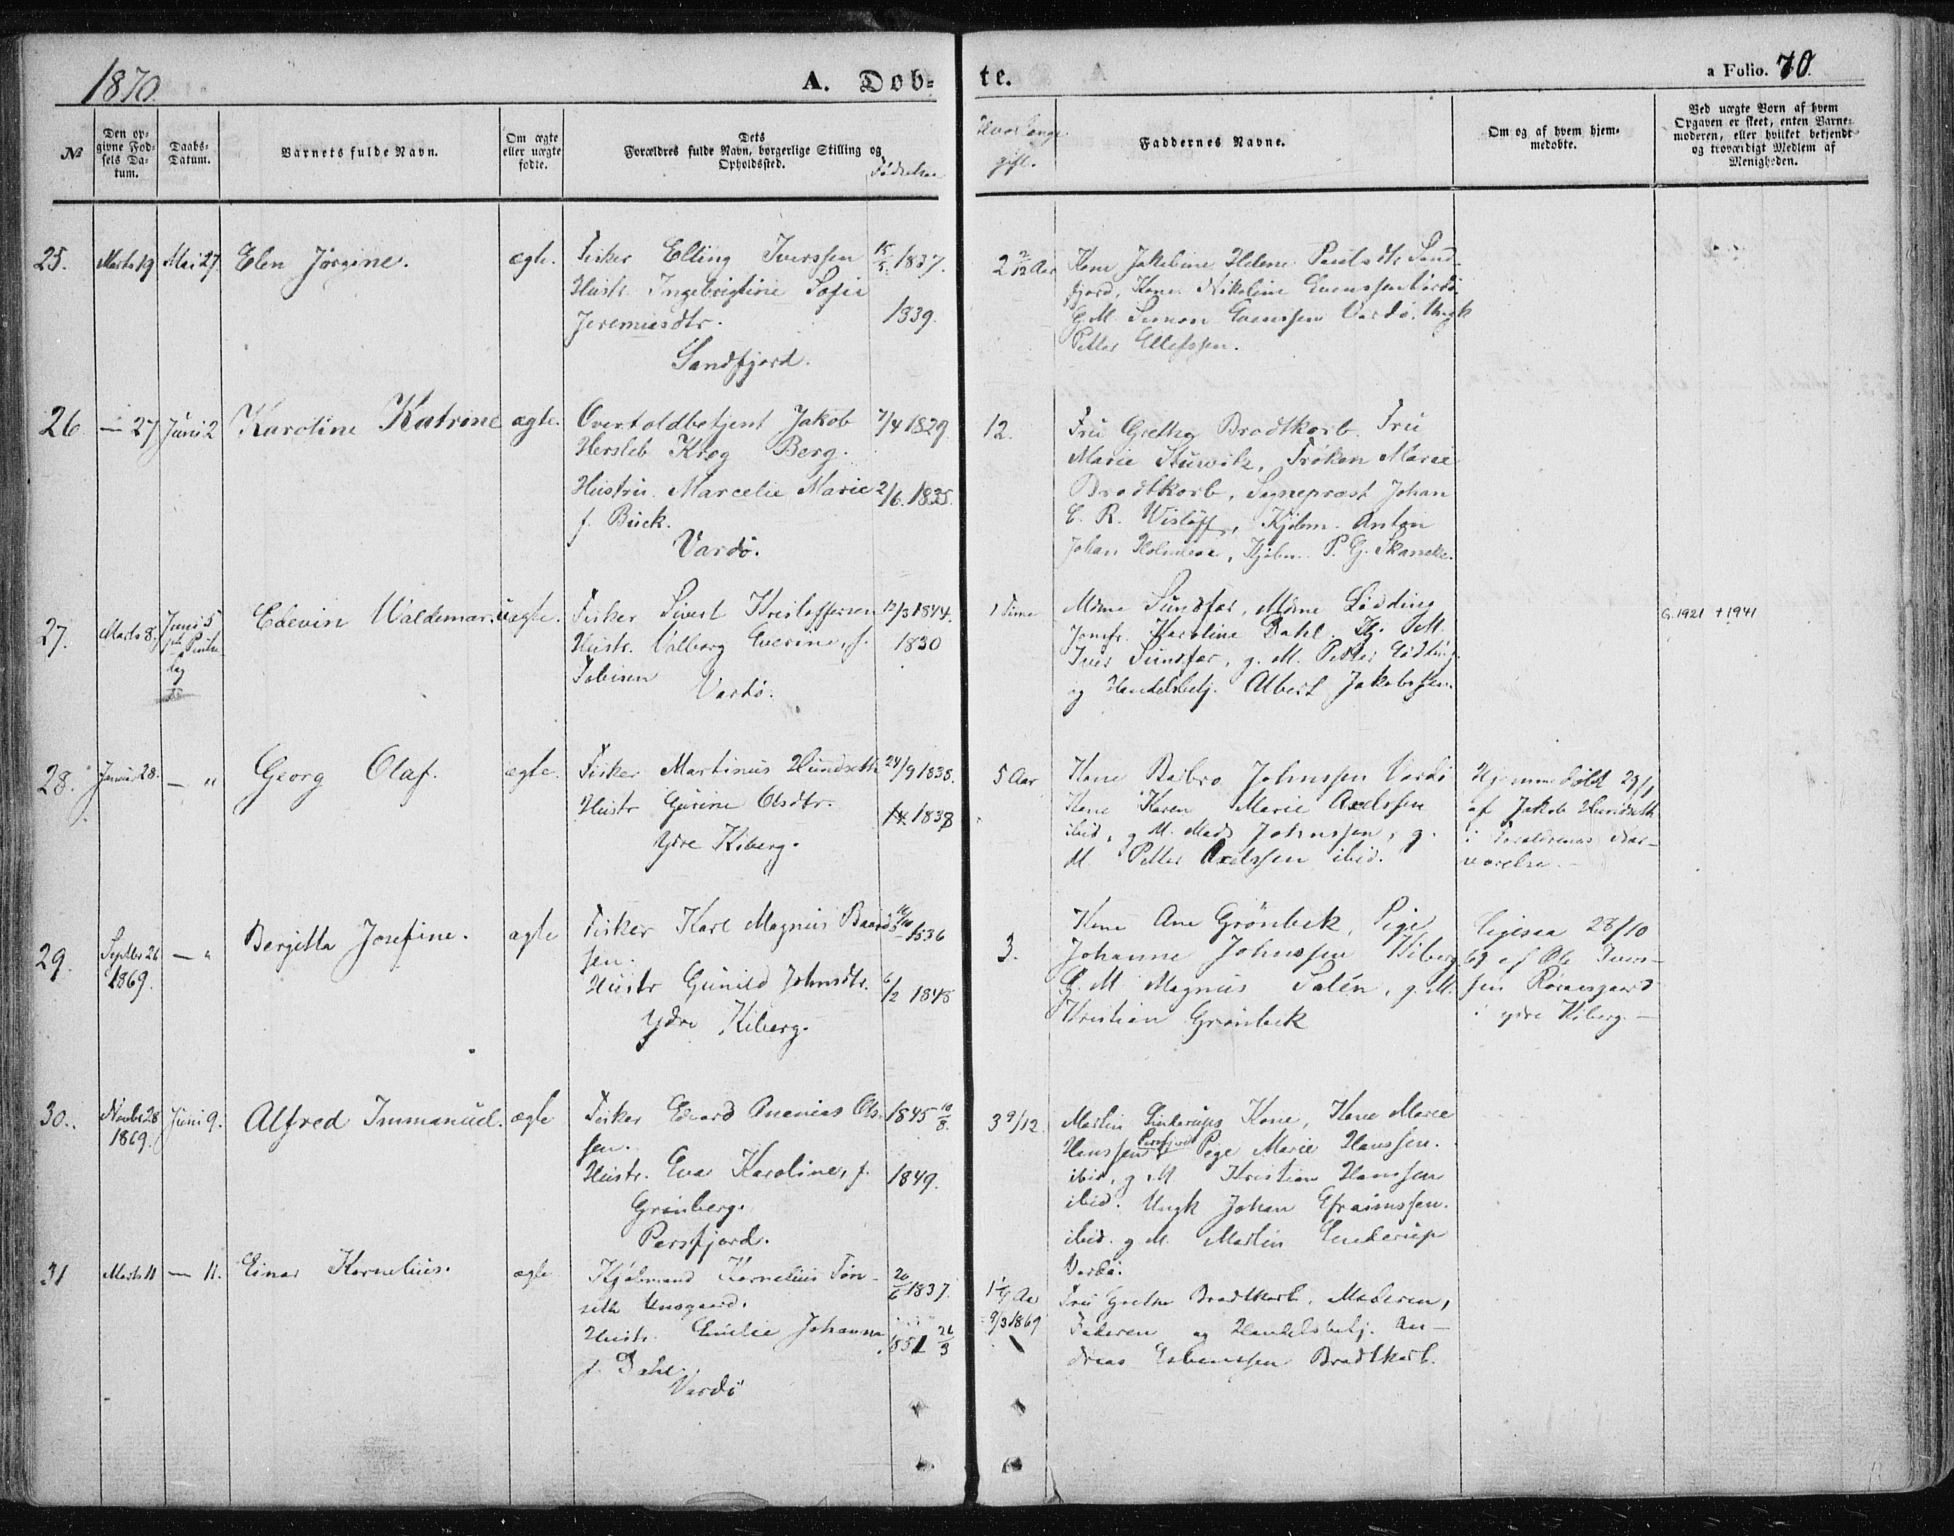 1870.
A. Døb-
te.
a Folio. 70.
No
Den op-
givne Fød-
sels Da-
tum.
Daabs-
Datum.
Barnets fulde Navn.
Om ægte
eller uægte
fødte.
Dets
Forældres fulde Navn, borgerlige Stilling og
Opholdssted.
Fødselsaar
Hvor længe
gift.
Faddernes Navne.
Om og af hvem hjem-
medøbte.
Ved uægte Børn af hvem
Opgaven er skeet, enten Barne-
moderen, eller hvilket bekjendt
og troværdigt Medlem af
Menigheden.
25.
Marts 19
Mai 27
Elen Jørgine.
ægte.
Fisker Elling Iverssen
15/5 1837.
Hustr. Ingebrigtine Sofie
Jeremiasdtr.
1839.
Sandfjord.
2 Aar
Kone Jakobine Helene Paulsdtr. Sand-
fjord, Kone Nikoline Evenssen Vardø
G. M. Simon Evenssen Vardø. Ungk
Petter Ellefssen.
26
— 27
Juni 2
Karoline Katrine
ægte.
Overtoldbetjent Jakob
7/4 1829.
Hersleb Krog Berg.
Hustru. Marcelie Marie
2/6. 1835.
f. Buck.
Vardø.
12.
Fru Grethe Brodtkorb. Fru
Marie Frøken Marie
Brodtkorb, Sognepræst Johan
C. R. Wisløff, Kjøbm. Anton
Johan Holmboe, Kjøbm. P. G. Skancke.
27.
Marts 8.
Juni 5
Edevin Waldemar.
uægte.
Fisker Sivert Kristoffersen
12/3 1844.
Hustr. Valborg Everine, f.
1830
Tobisen
Vardø.
Mdme Sundfær, Mdme Lødding
Jomfr. Karoline Dahl.
Iver Sundfær, g. M. Petter Lødding
og Handelsbetj. Albert Jakobssen.
G. 1921 + 1941
28.
Januar 28.
— "
Georg Olaf.
ægte.
Fisker Martinus Hundseth
24/9 1838.
Hustr Gurine Olsdtr.
1838
Ydre Kiberg.
5 Aar
Kone Barbro Johnssen Vardø
Kone Karen Marie Axelssen
ibid, g. M. Mads Johnssen, g.
M. Petter Axelssen ibid.
Hjemmedøbt 29/1
af Jakob Hundseth
i Forældrenes Nær-
værelse. —
29.
Septbr 26
1869.
— "
Bergitta Josefine.
ægte
Fisker Karl Magnus Baard
1836
sen.
Hustr Gunild Johnsdtr.
6/2 1848
Ydre Kiberg.
3.
Kone Ane Grönbek, Pige
Johanne Johnssen Kiberg
G. M Magnus Salén, g. M.
Kristian Grönbek
ligesaa 28/10
69 af Ole Iver-
sen
i ydre Kiberg. —
30.
Novbr 28
1869.
Juni 9.
Alfred Immanuel.
ægte
Fisker Edvard Ananias Ols-
1845 10/8.
sen.
Hustr. Eva Karoline, f.
1849.
Grönberg.
Persfjord.
3 9/12
Martin Kone, Kone Marie
Hanssen Persfjord Pige Marie Hanssen.
ibid, g M Kristian Hanssen
ibid. Ungk Johan Efraimssen.
ibid. g. M. Martin
Vardø.
31
Marts 11
— 11.
Einar Kornelius.
ægte
Kjøbmand Kornelius Tøn-
20/6 1837.
seth Unsgaard.
Hustr. Emilie Johanna
1851 26/3
f. Dahl.
Vardø
1 1/4 Aar
9/3 1869
Fru Grethe Brodtkorb, Moderen,
Faderen og Handelsbetj. An-
dreas Esbenssen Brodtkorb.